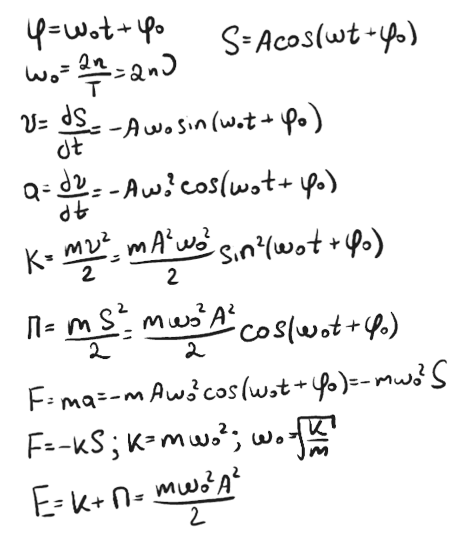 φ=ω₀t+φ₀ S=Acos(ωt+φ₀)
ω₀=2π/T=2πν
v=dS/dt=-Aω₀sin(ω₀t+φ₀)
a=dv/dt=-Aω₀²cos(ω₀t+φ₀)
K=mv²/2=mA²ω₀²/2 sin²(ω₀t+φ₀)
П=mS²/2=mω₀²A²/2 cos(ω₀t+φ₀)
F=ma=-mAω₀²cos(ω₀t+φ₀)=-mω₀²S
F=-kS; k=mω₀²; ω₀=√(k/m)
E=K+П=mω₀²A²/2